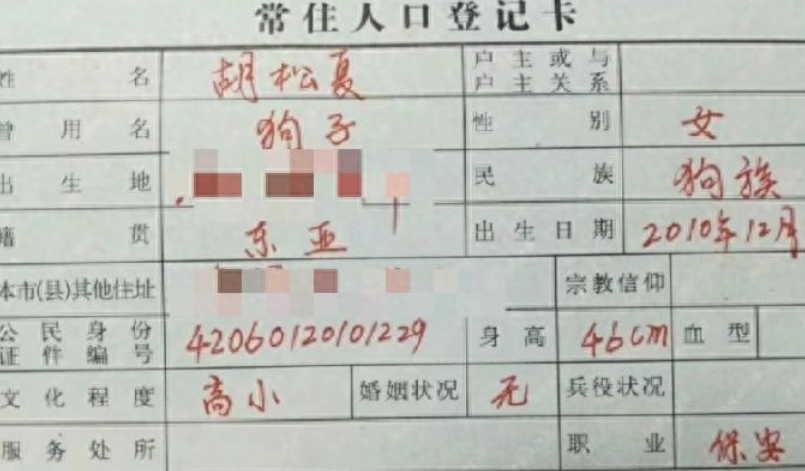 常住人口登记卡
姓名 胡松夏 户主或与户主关系
曾用名 狗子 性别 女
出生地 民族 狗族
籍贯 东亚 出生日期 2010年12月
本市(县)其他住址 宗教信仰
公民身份证件编号 42060120101229 身高 46cm 血型
文化程度 高小 婚姻状况 无 兵役状况
服务处所 职业 保安